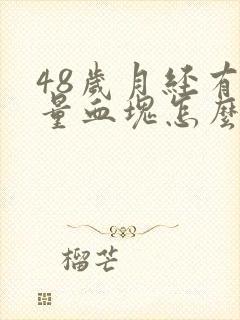 48歲月经有
量血塊怎麼
榴芒